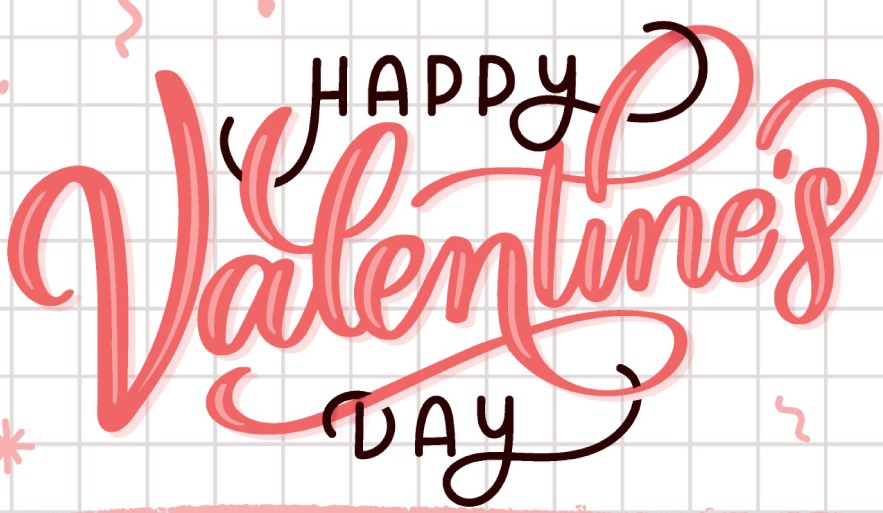 HAPPY
Valentine's
DAY